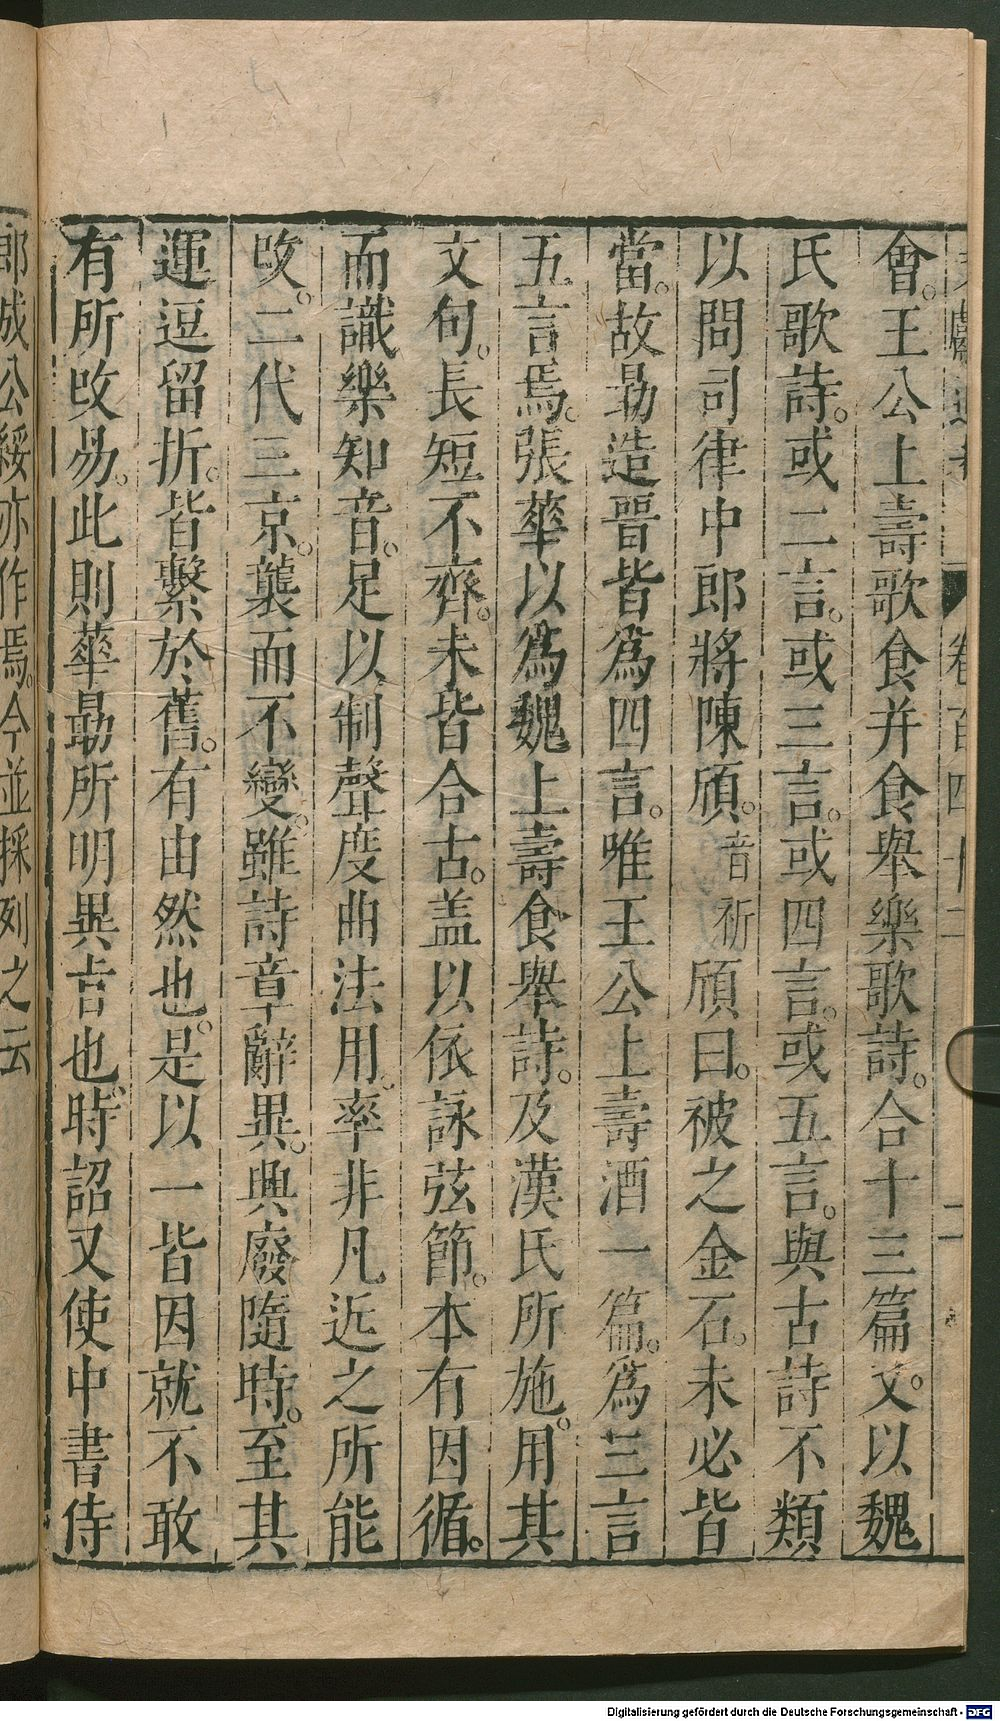 獻通考 卷百四十二 二
會。王公上壽歌食并食舉樂歌詩。合十三篇文。以魏
氏歌詩。或二言。或三言。或四言。或五言。與古詩不類
以問司律中郎將陳頎。音祈頎曰。被之金石。未必皆
當。故勗造晉皆爲四言。唯王公上壽酒一篇。爲三言
五言焉。張華以爲魏上壽食舉詩。及漢氏所施。用其
文句。長短不齊。未皆合古。盖以依詠弦節。本有因循。
而識樂知音。足以制聲度曲法用。率非凡近之所能
攺。二代三京。襲而不變。雖詩章辭異。興廢隨時。至其
運逗留折。皆繫於舊。有由然也。是以一皆因就不敢
有所攺易。此則華勗所明異旨也。時詔又使中書侍
郎成公綏亦作焉。今並採列之云
Digitalisierung gefördert durch die Deutsche Forschungsgemeinschaft - DFG